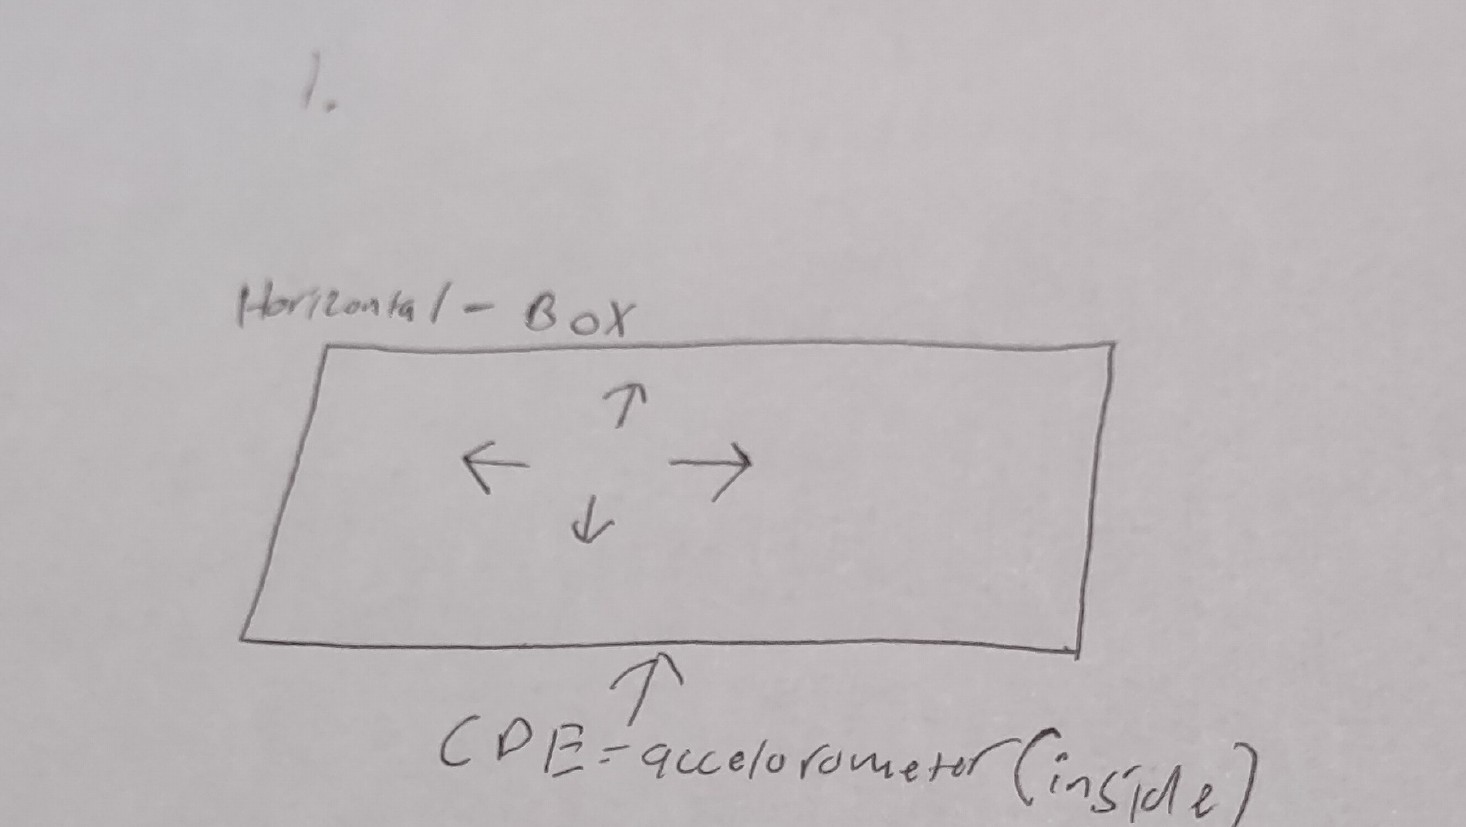 1.
Horizontal - Box
CDE = accelorometer (inside)